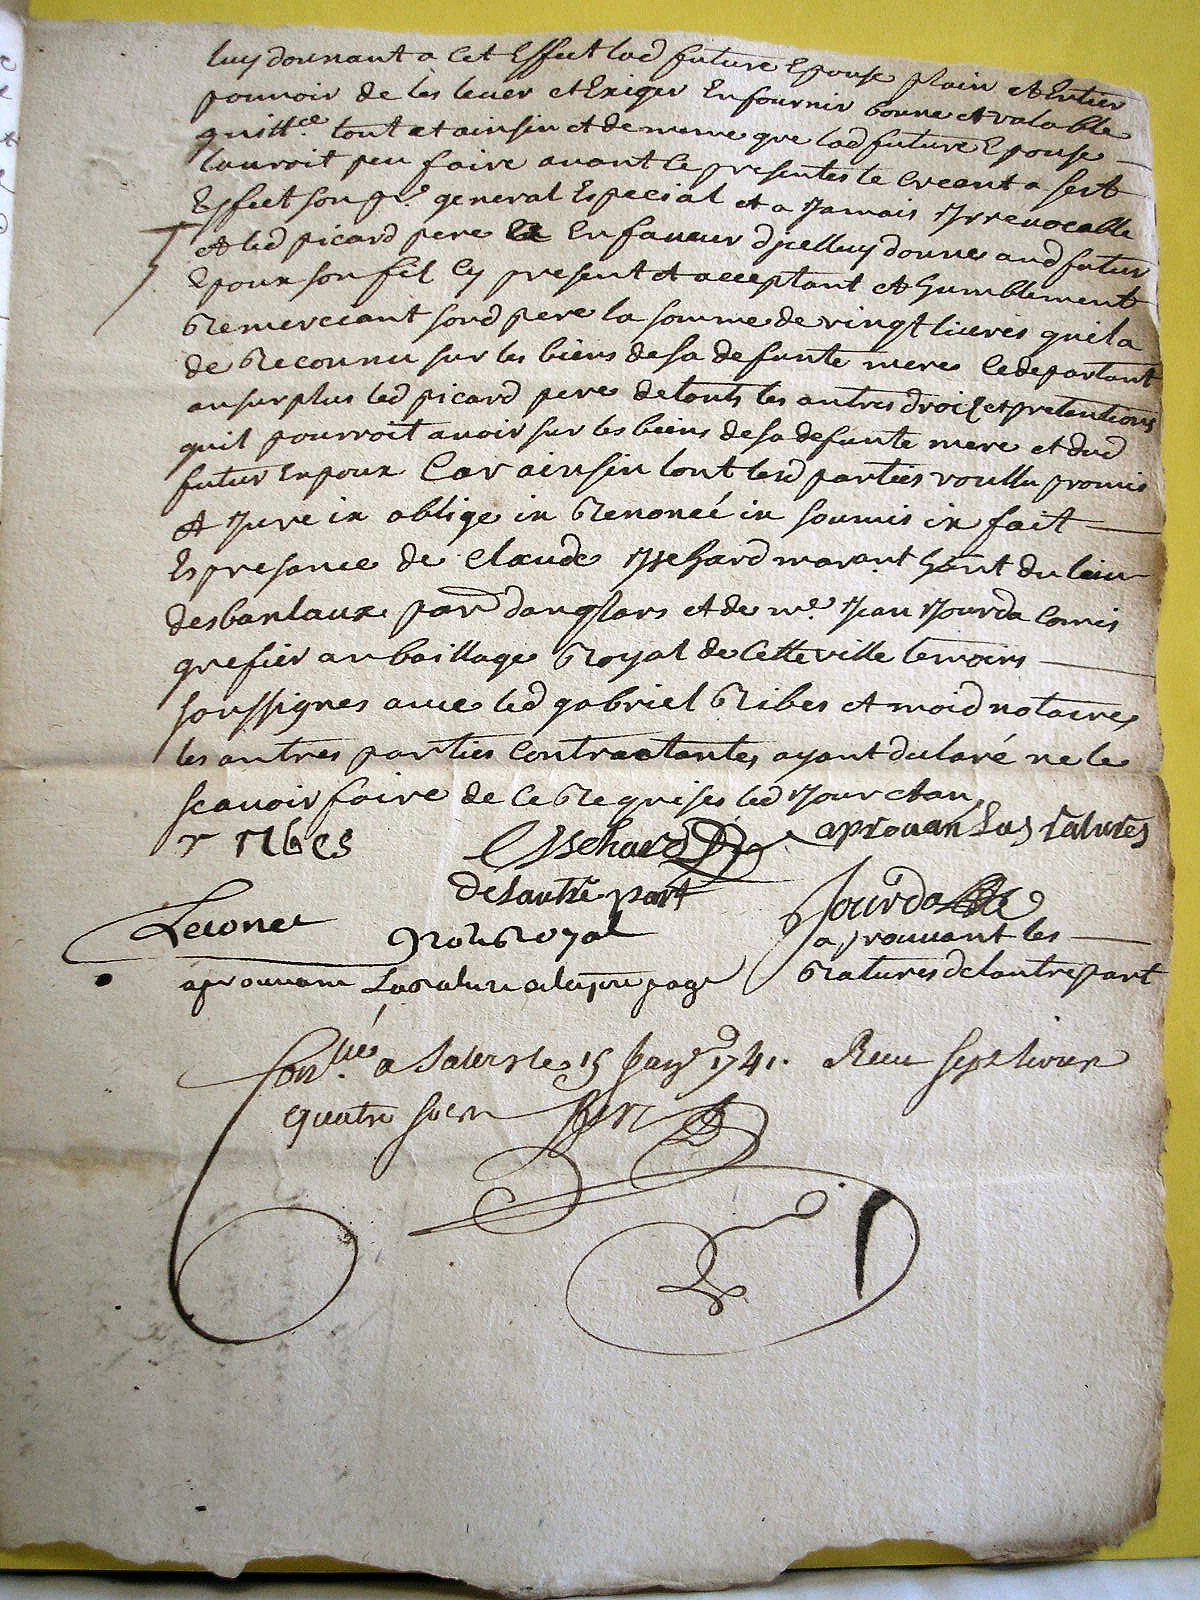 luy donnant a cet Effect lad future Epouse plain et Entier
pouvoir de les lever et Exiger En fournir bonne et valable
quitt.ce tout et ainsin et de meme que lad future Epouse
lauroit peu faire avant ce presentes le creant a sert
Effect son p.r general Especial et a Jamais Jrrevocable
et led picard pere En faveur djcelluy donne aud futur
Epoux son fil cy present et acceptant et humblement
Remerciant sond pere la somme de vingt livres quil a
de Reconnu sur les biens de sa defunte mere ce departant
au surplus led picard pere de touts les autres droitz et pretentions
quil pourroit avoir sur les biens de sa defunte mere et dud
futur Enpoux Car ainsin lont lesd parties voullu promis
et Jure in oblige in Renoncé in soumis in fait
Es presance de Claude Jssehard march.nt hant du lieu
desbanlaux par.d danglars et de m.e Jean Jourda comis
grefier au baillage Royal de Cette ville temoins
soussignes avec led gabriel Ribes et moid notaire
les autres parties Contractantes ayant declaré ne le
scavoir faire de ce Requises led Jour et an
r ribes
Jssehard aprouan Las ratures
de lautre part
Jourda
Leconet
Not. Royal
aprouvant les
Ratures de lautre part
aprouvam La rature de la p.re page
Con.llé a Salers le 15 Janv.r 1741. Receu sept livres
quatre sols